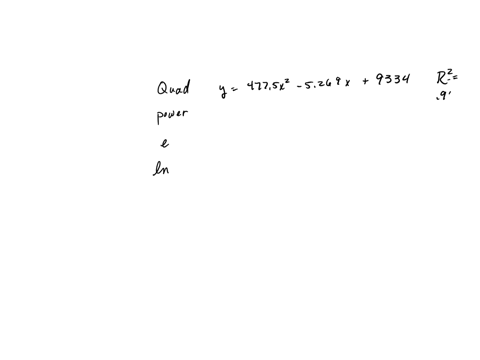 Quad y = 477.5x² - 5.269x + 9334 R² =
.9'
power
e
ln